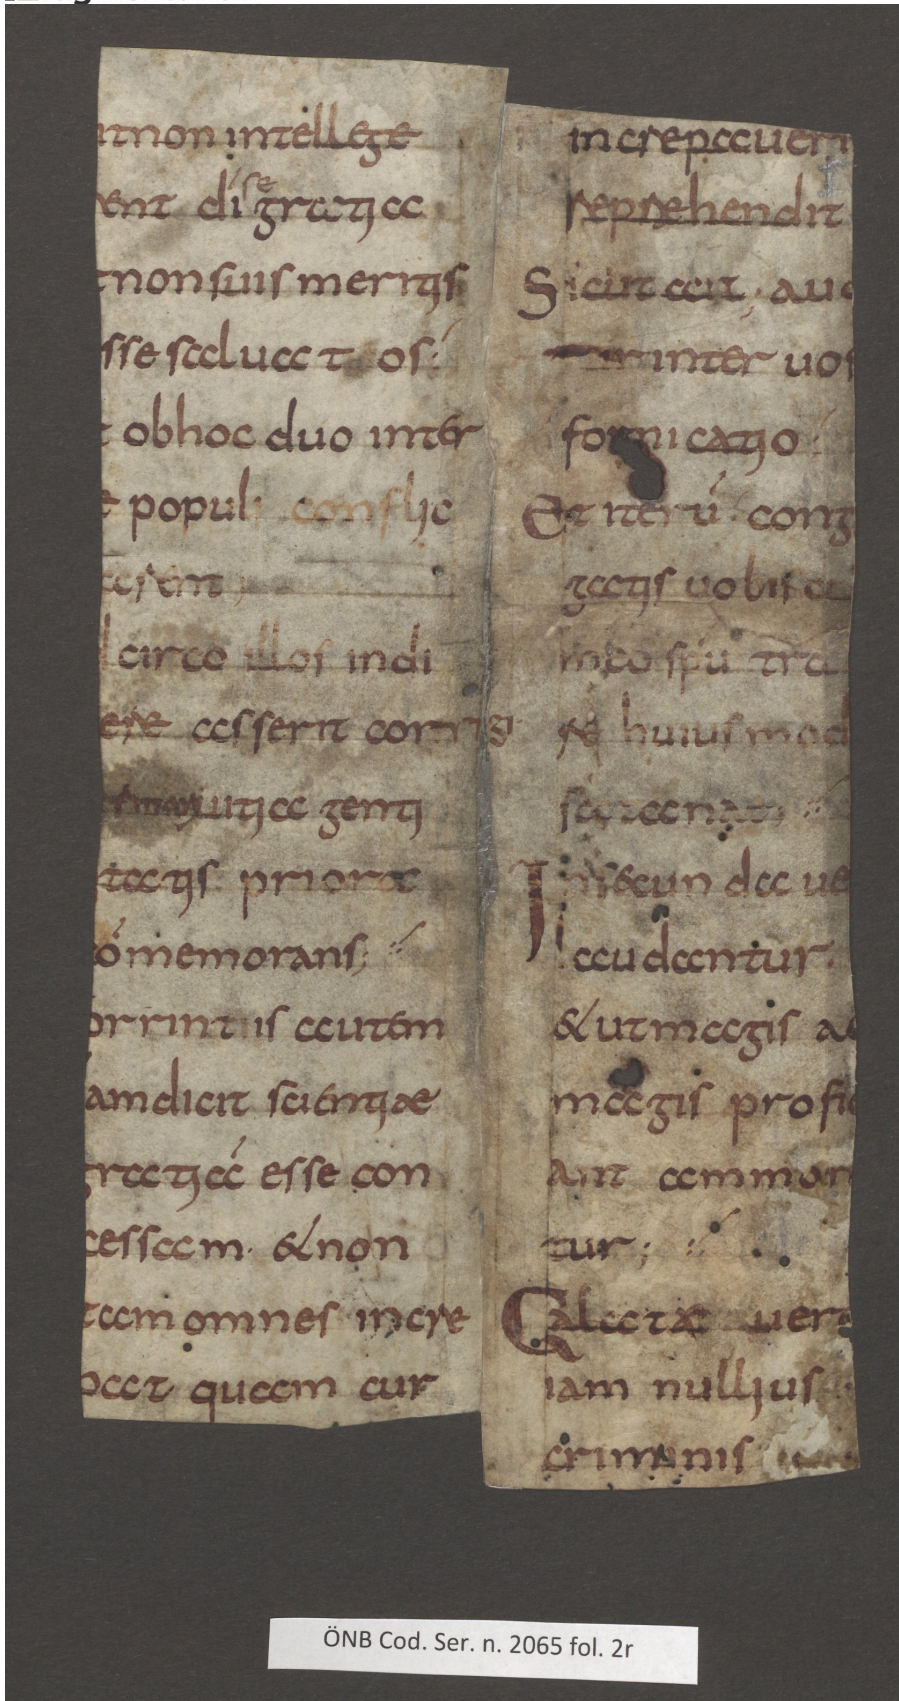 utnon intellege
rent di se gratia
tnonsuis meritis
sse saluat os
t obhoc duo inter
e populi conflic
arent;
circo illos indi
ere asserit corrigi
utia genti
tatis priora
cómemorans;
orrint is autem
amdicit scientiae
gratiá esse con
cessam. &non
tam omnes incre
pat quam cur
increpaueri
reprehendit
Sicut ait, aud
tur inter uos
fornicatio
Et iterú cong
gatis uobis
meo spú tra
re huiusmod
satanat;
In secunda ue
laudantur
&ut magis a
magis profic
ant ammon
tur;
Galatae uero
iam nullius
criminis
ÖNB Cod. Ser. n. 2065 fol. 2r